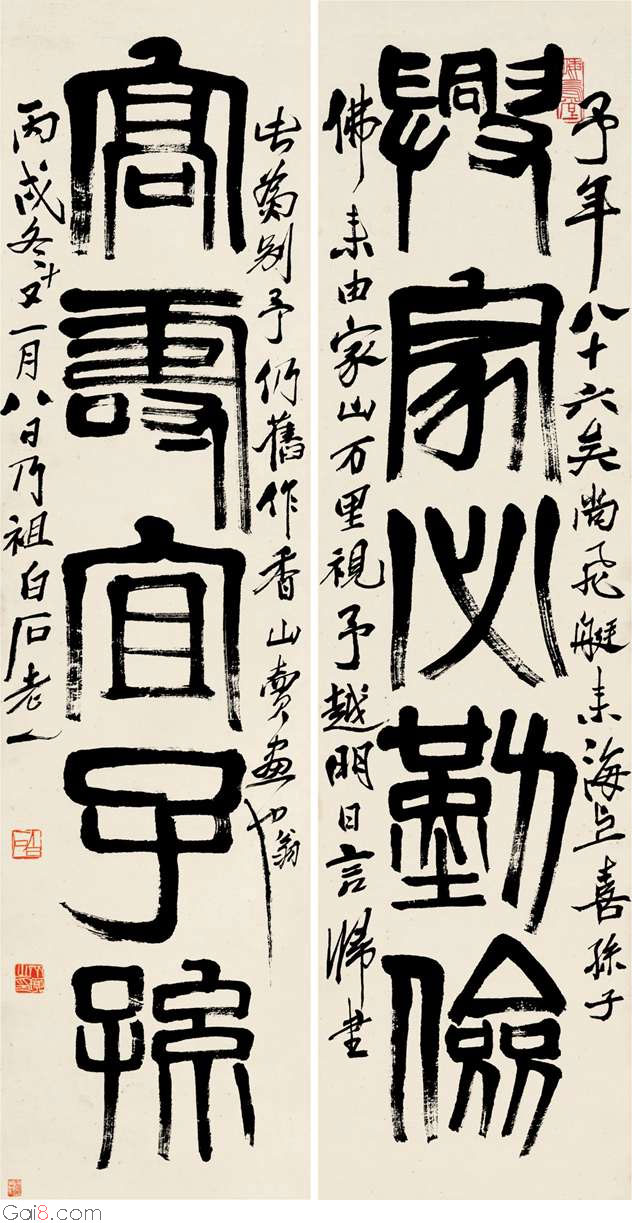 予年八十六矣尚飛艇来海上喜孫子
興家必勤儉
佛来由家山万里視予越明日言歸書
此為別予仍舊作香山賣画翁也
高壽宜子孫
丙戌冬十又一月八日乃祖白石老人
Gai8.com